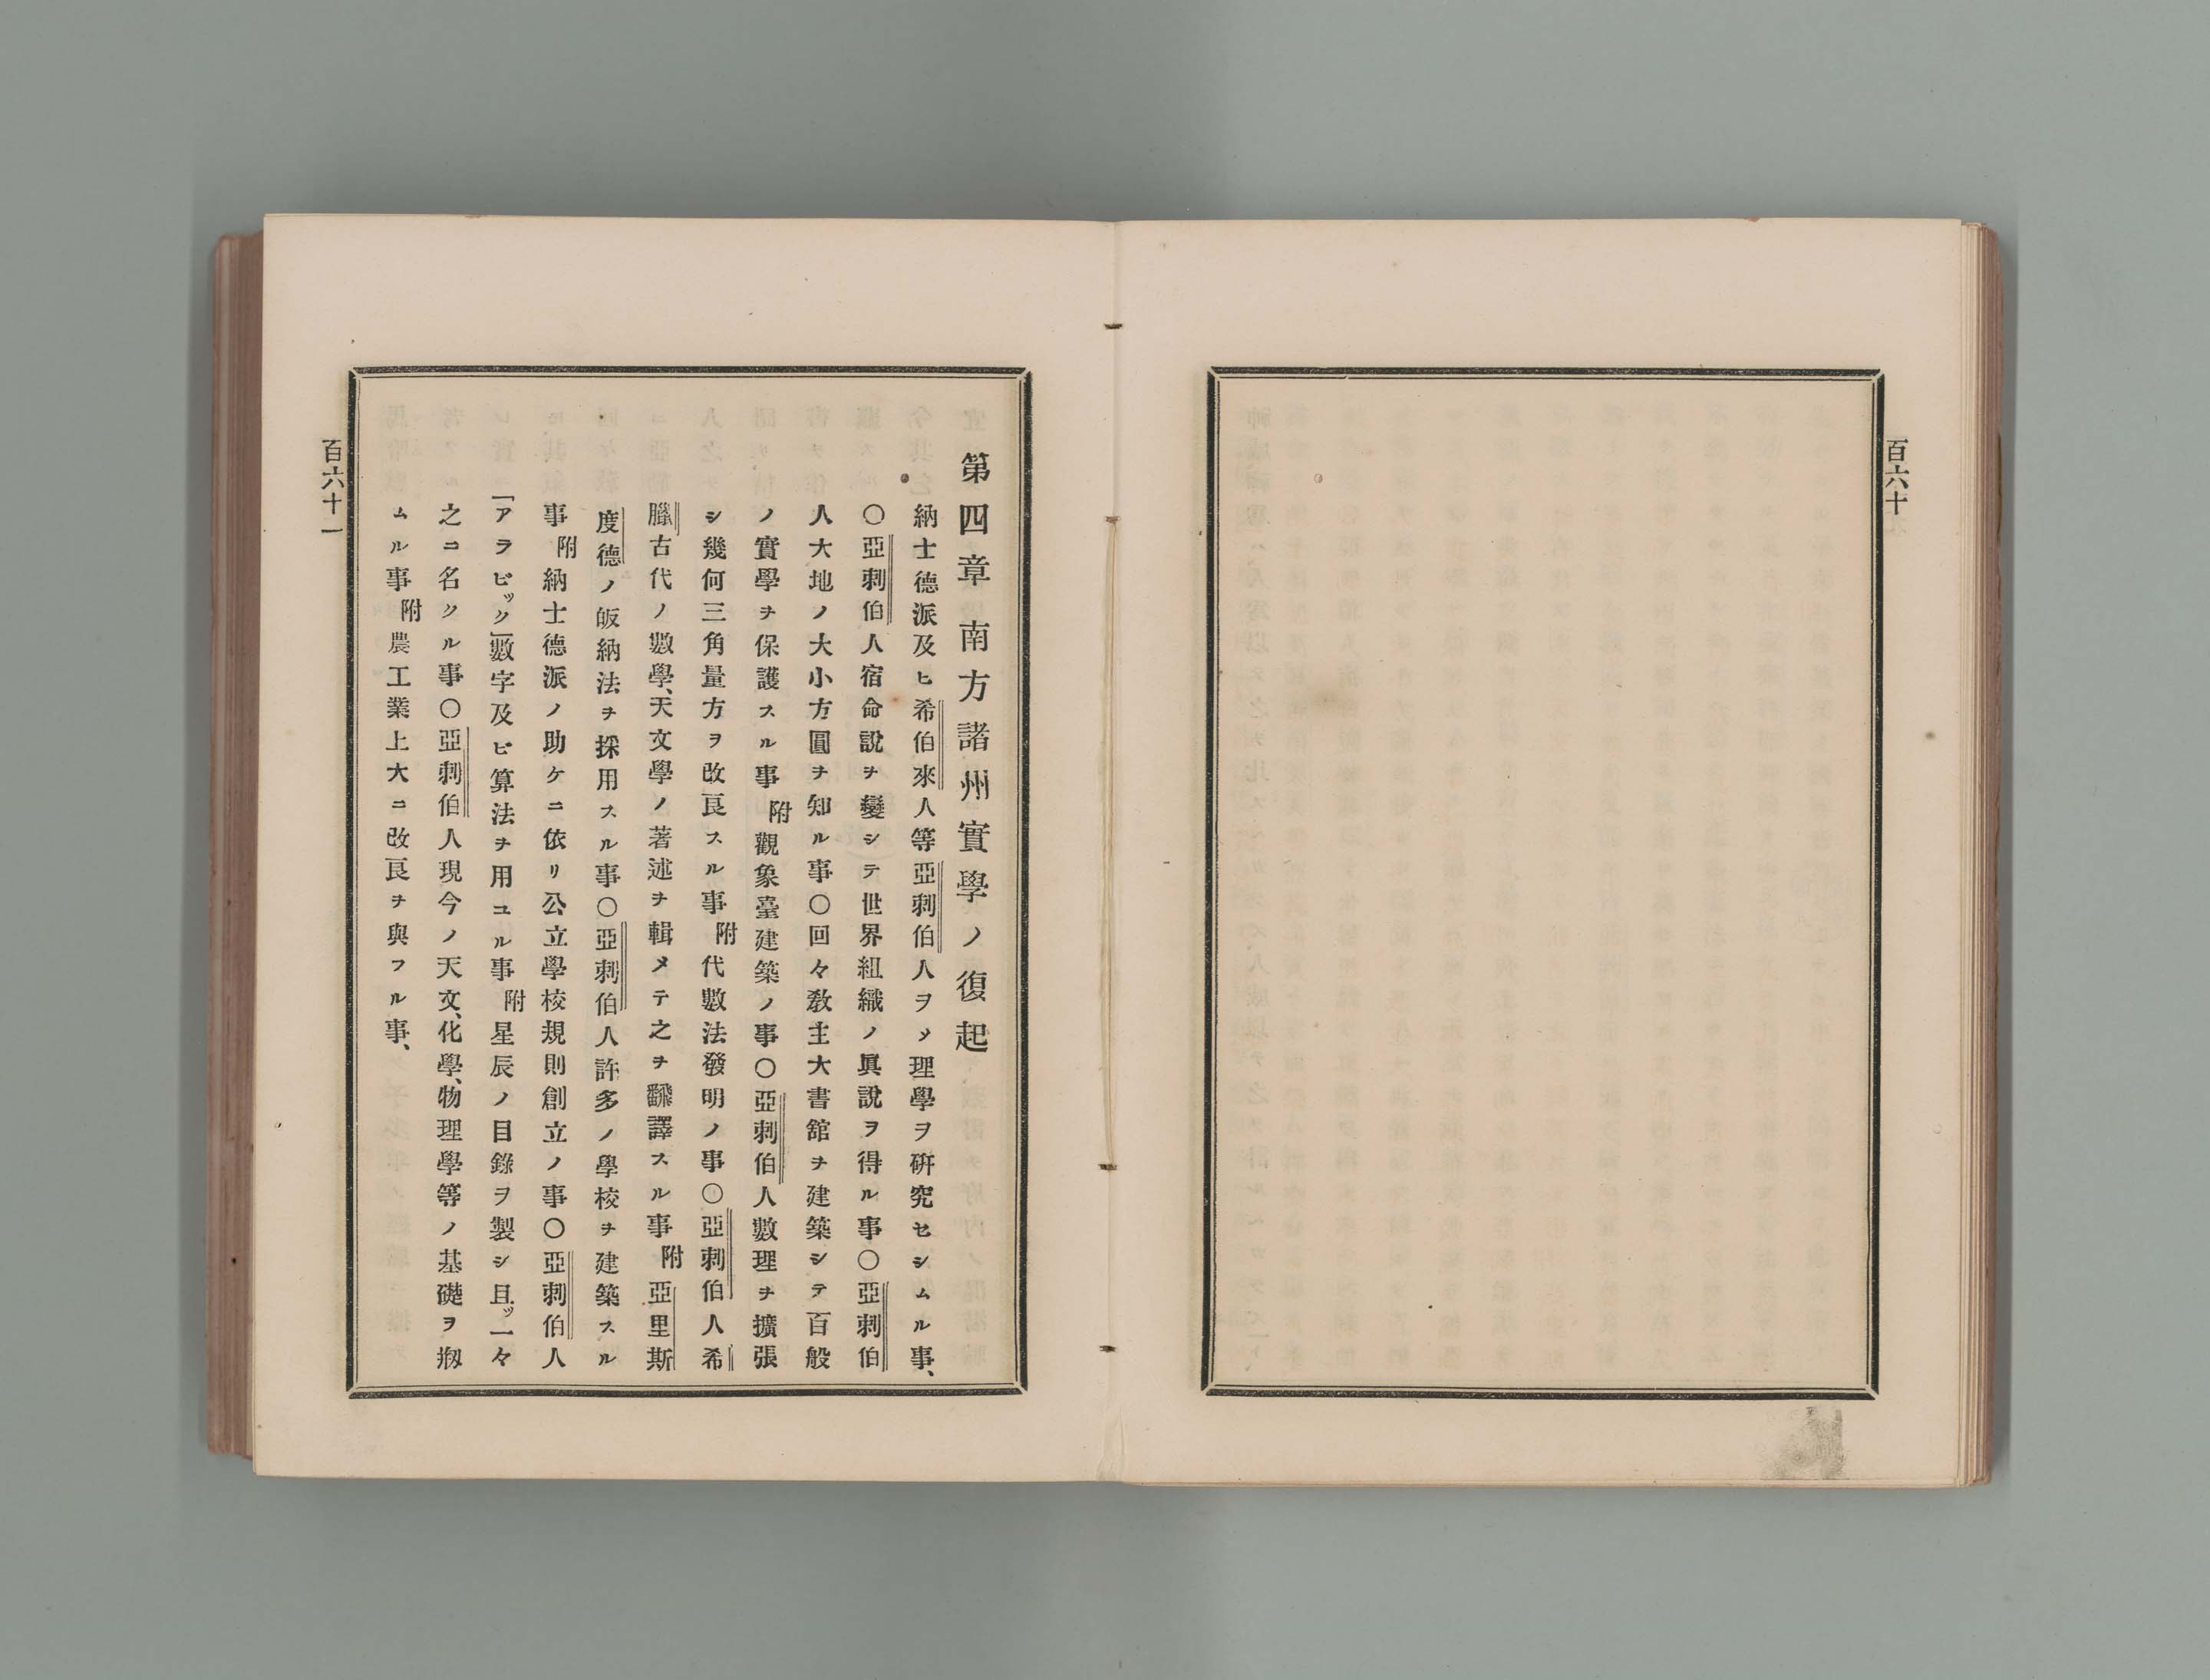 百六十
第四章南方諸州實學ノ復起
納士德派及ヒ希伯來人等亞剌伯人ヲシテ理學ヲ硏究セシムル事、
〇亞剌伯人宿命說ヲ變シテ世界組織ノ眞說ヲ得ル事〇亞剌伯
人大地ノ大小方圓ヲ知ル事〇回々敎主大書舘ヲ建築シテ百般
ノ實學ヲ保護スル事附觀象臺建築ノ事〇亞剌伯人數理ヲ擴張
シ幾何三角量方ヲ改良スル事附代數法發明ノ事〇亞剌伯人希
臘古代ノ數學、天文學ノ著述ヲ輯メテ之ヲ飜譯スル事附亞里斯
度德ノ皈納法ヲ採用スル事〇亞剌伯人許多ノ學校ヲ建築スル
事附納士德派ノ助ケニ依リ公立學校規則創立ノ事〇亞剌伯人
「アラビック」數字及ビ算法ヲ用ユル事附星辰ノ目錄ヲ製シ且ッ一々
之ニ名クル事〇亞剌伯人現今ノ天文、化學、物理學等ノ基礎ヲ剏
ムル事附農工業上大ニ改良ヲ與フル事、
百六十一